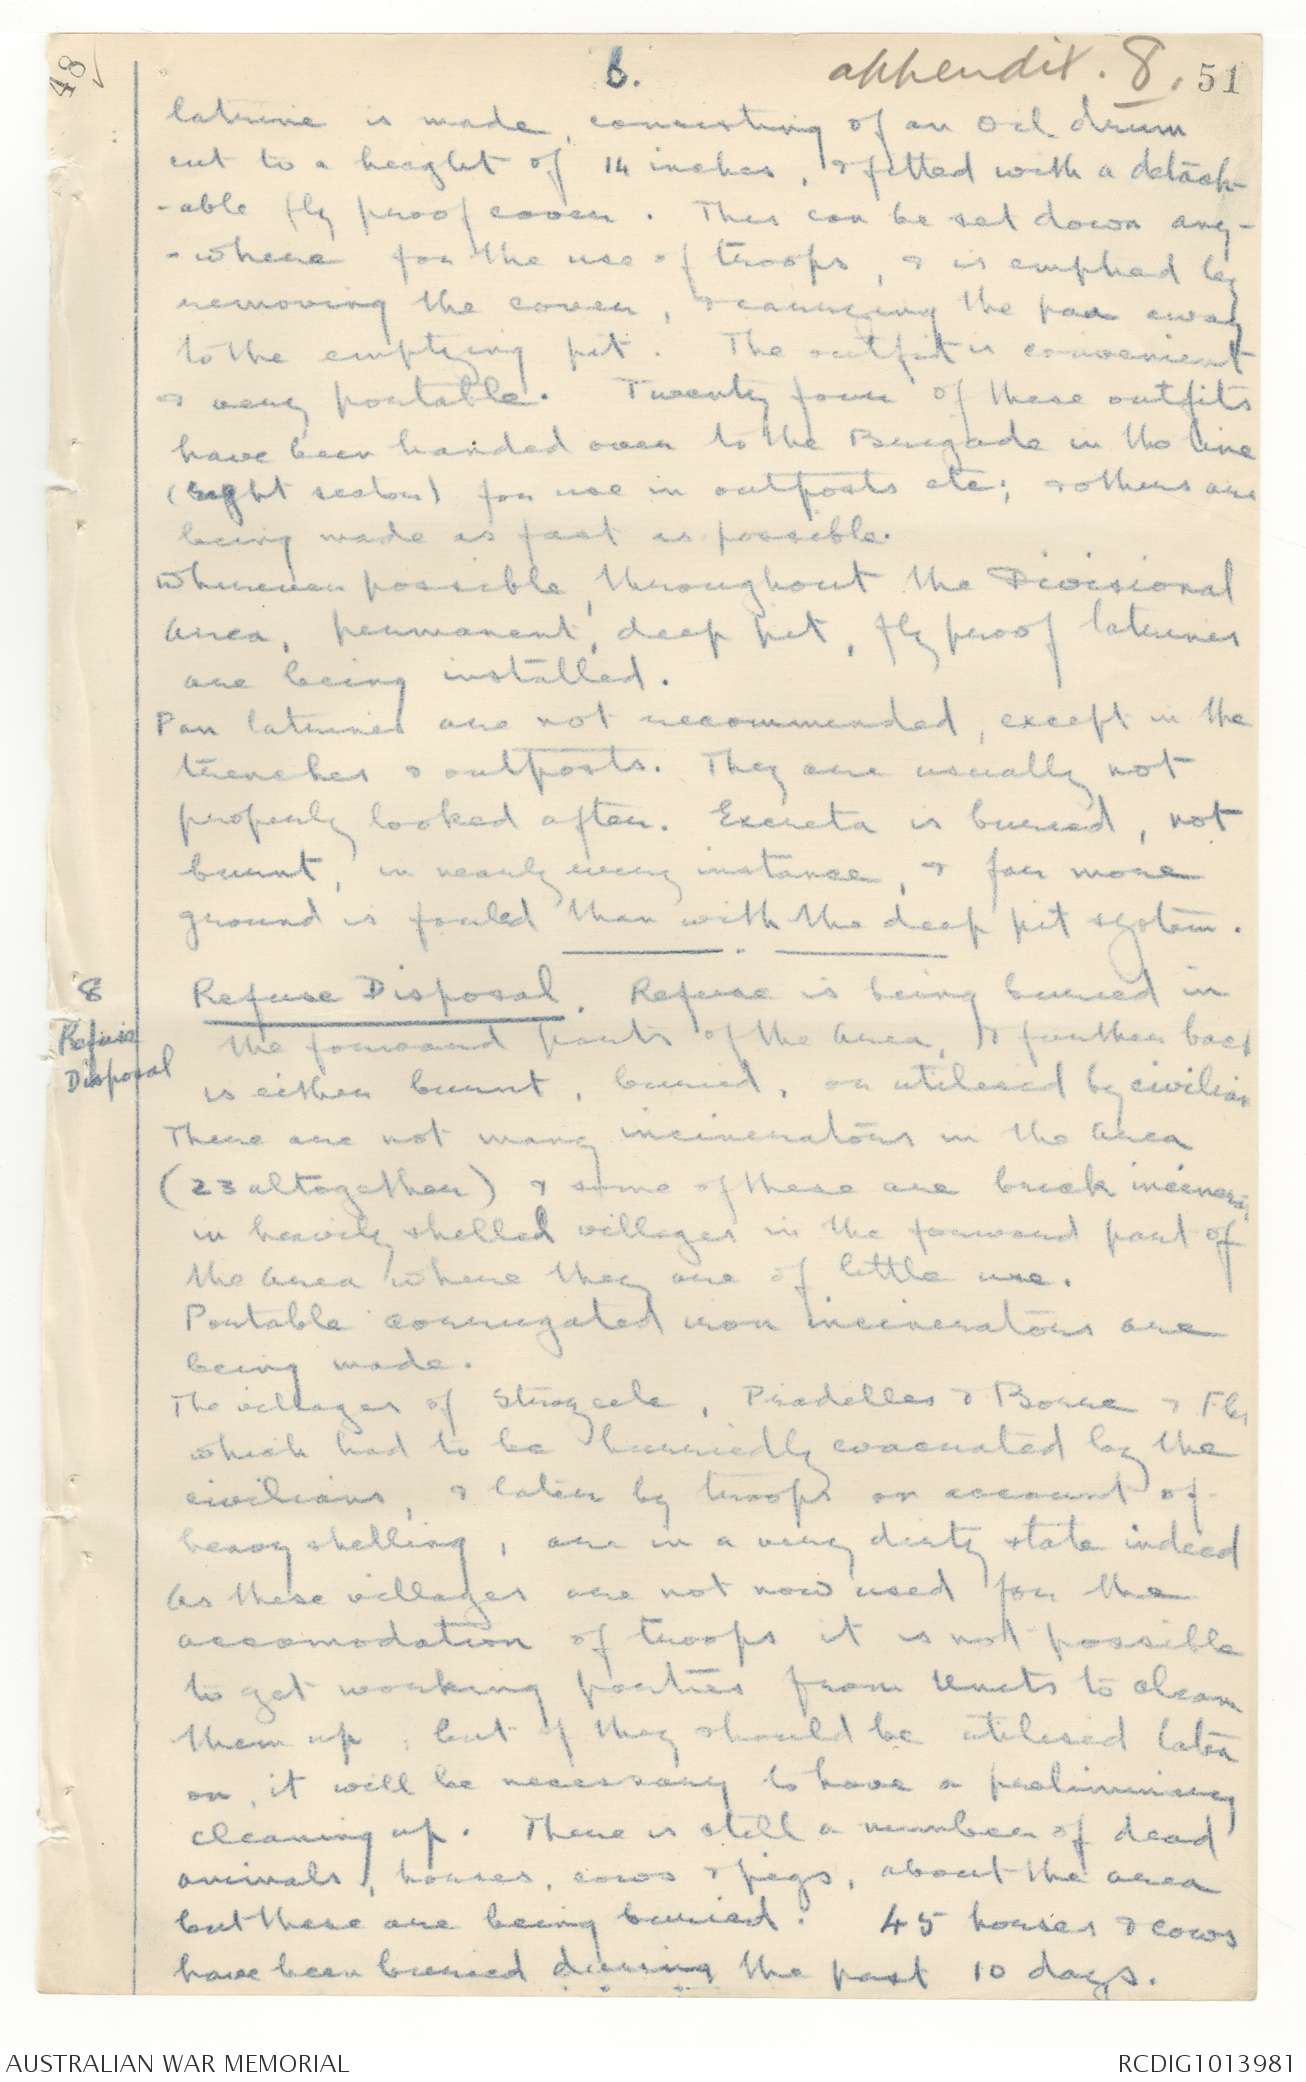 48
6.
appendix. 8.
51
latrine is made, consisting of an Oil drum
cut to a height of 14 inches, & fitted with a detach-
-able fly proof cover. This can be set down any-
-where for the use of troops, & is emptied by
removing the cover, & carrying the pan away
to the emptying pit. The outfit is convenient
& very portable. Twenty four of these outfits
have been handed over to the Brigade in the line
(right sector) for use in outposts etc; & others are
being made as fast as possible.
Wherever possible, throughout the Divisional
Area, permanent, deep pit, fly proof latrines
are being installed.
Pan latrines are not recommended, except in the
trenches & outposts. They are usually not
properly looked after. Excreta is buried, not
burnt, in nearly every instance, & far more
ground is fouled than with the deep pit system.
8
Refuse
Disposal
Refuse Disposal. Refuse is being buried in
the forward parts of the Area, & further back
is either burnt, buried, or utilised by civilian
There are not many incinerators in the Area
(23 altogether) & some of these are brick incinera
in heavily shelled villages in the forward part of
the Area where they are of little use.
Portable corrugated iron incinerators are
being made.
The villages of Strazeele, Pradelles & Borre &
which had to be hurriedly evacuated by the
civilians, & later by troops on account of
heavy shelling, are in a very dirty state indeed
As these villages are not now used for the
accomodation of troops it is not possible
to get working parties from Units to clean
them up, but if they should be utilised later
on, it will be necessary to have a preliminary
cleaning up. There is still a number of dead
animals, horses, cows & pigs, about the area
but these are being buried. 45 horses & cows
have been buried during the past 10 days.
AUSTRALIAN WAR MEMORIAL
RCDIG1013981